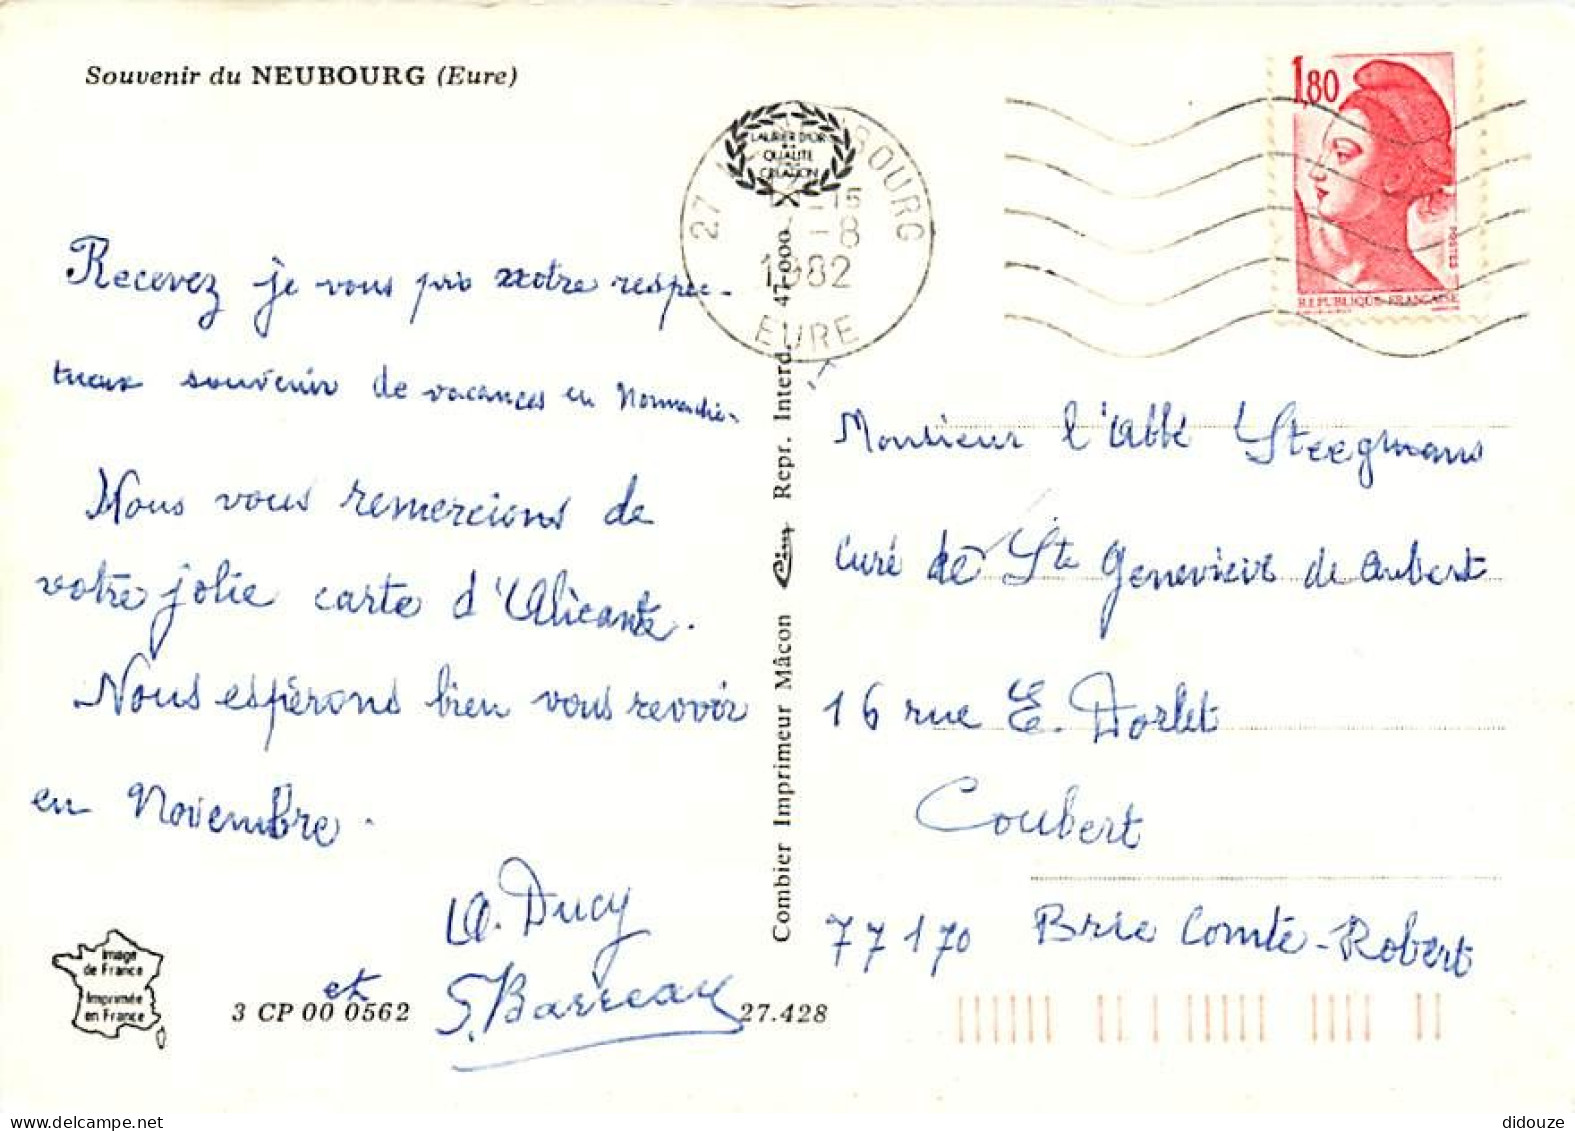 Souvenir du NEUBOURG (Eure)
LAURIER D'OR
QUALITE
CREATION
27 BOURG
-15
-8
1982
EURE
1,80
POSTES
REPUBLIQUE FRANCAISE
Recevez je vous prie notre respec-
tueux souvenir de vacances en Normandie.
Nous vous remercions de
votre jolie carte d'Alicante.
Nous espérons bien vous revoir
en Novembre.
A. Ducy
et
S. Barreau
Monsieur l'Abbé Steegmans
Curé de Ste Geneviève de Aubert
16 rue E. Dorlet
Coubert
77170 Brie Comte-Robert
Combier Imprimeur Mâcon Cim Repr. Interd. 47-000
Image
de France
Imprimée
en France
3 CP 00 0562
27.428
didouze